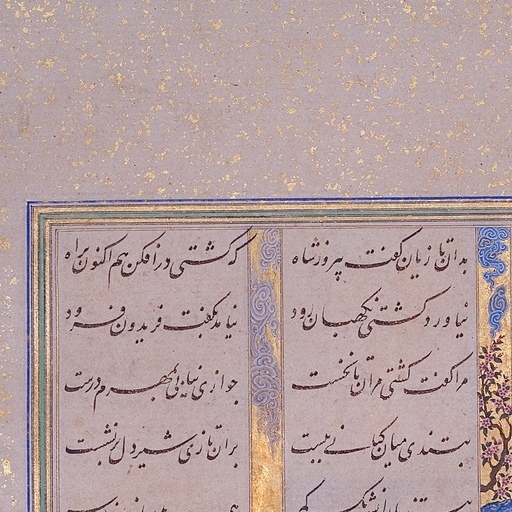 بدان تازیان گفت پیروز شاه که کشتی درافکن هم اکنون براه
نیاورد کشتی نگهبان رود نیامد بگفت فریدون فرود
مرا گفت کشتی مران تا نخست جوازی نیابی بمهرم درست
بتندی میان کیانی ببست بران تازی شیردل برنشست